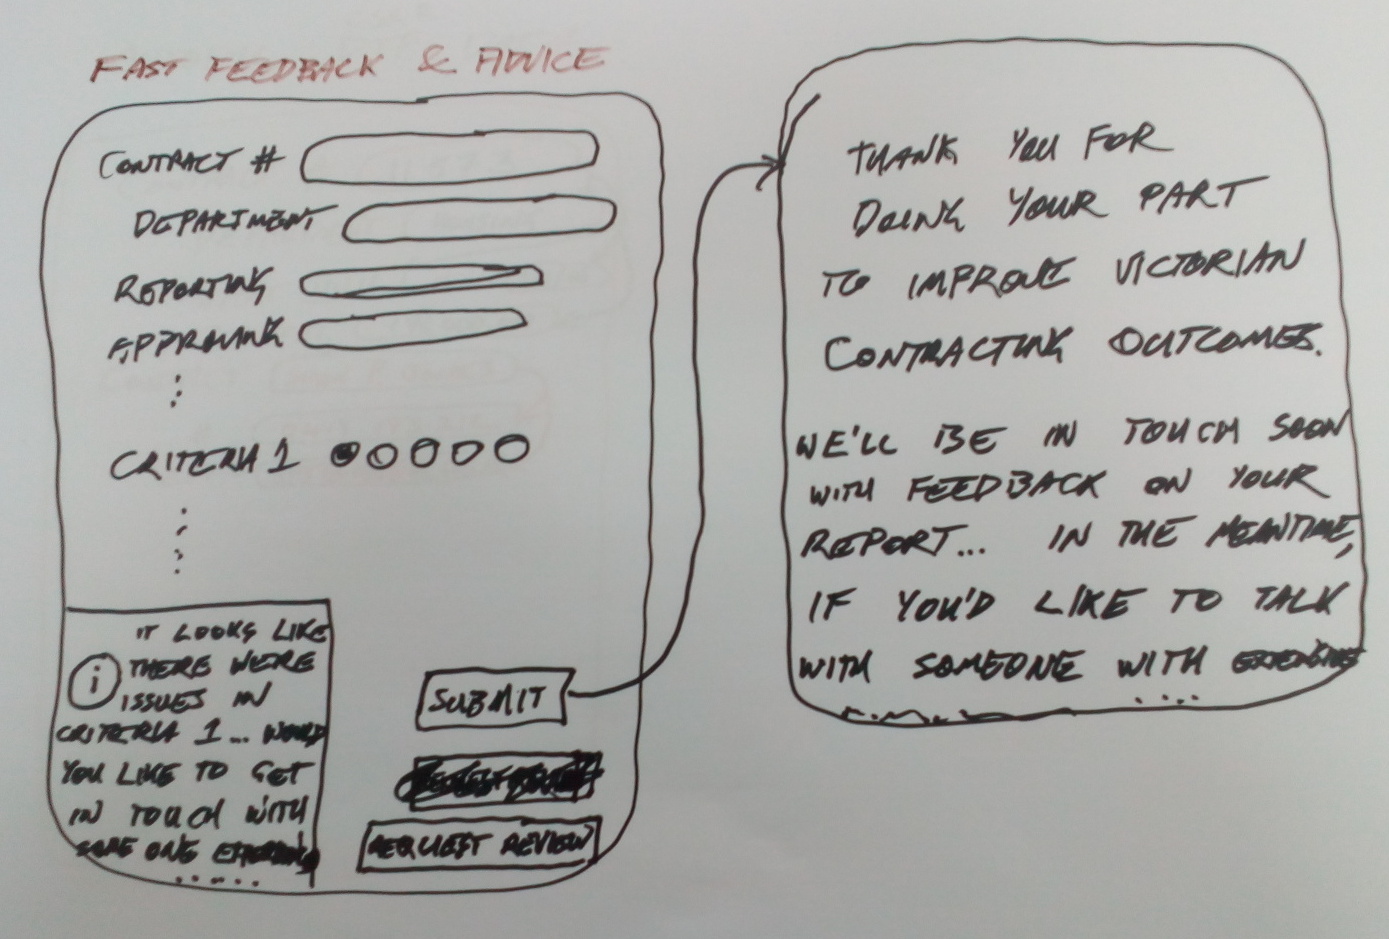 FAST FEEDBACK & ADVICE
CONTRACT #
DEPARTMENT
REPORTING
APPROVING
CRITERIA 1
IT LOOKS LIKE
i THERE WERE
ISSUES IN
CRITERIA 1... WOULD
YOU LIKE TO GET
IN TOUCH WITH
SOMEONE
.....
SUBMIT
REQUEST REVIEW
THANK YOU FOR
DOING YOUR PART
TO IMPROVE VICTORIAN
CONTRACTING OUTCOMES.
WE'LL BE IN TOUCH SOON
WITH FEEDBACK ON YOUR
REPORT... IN THE MEANTIME,
IF YOU'D LIKE TO TALK
WITH SOMEONE WITH
....